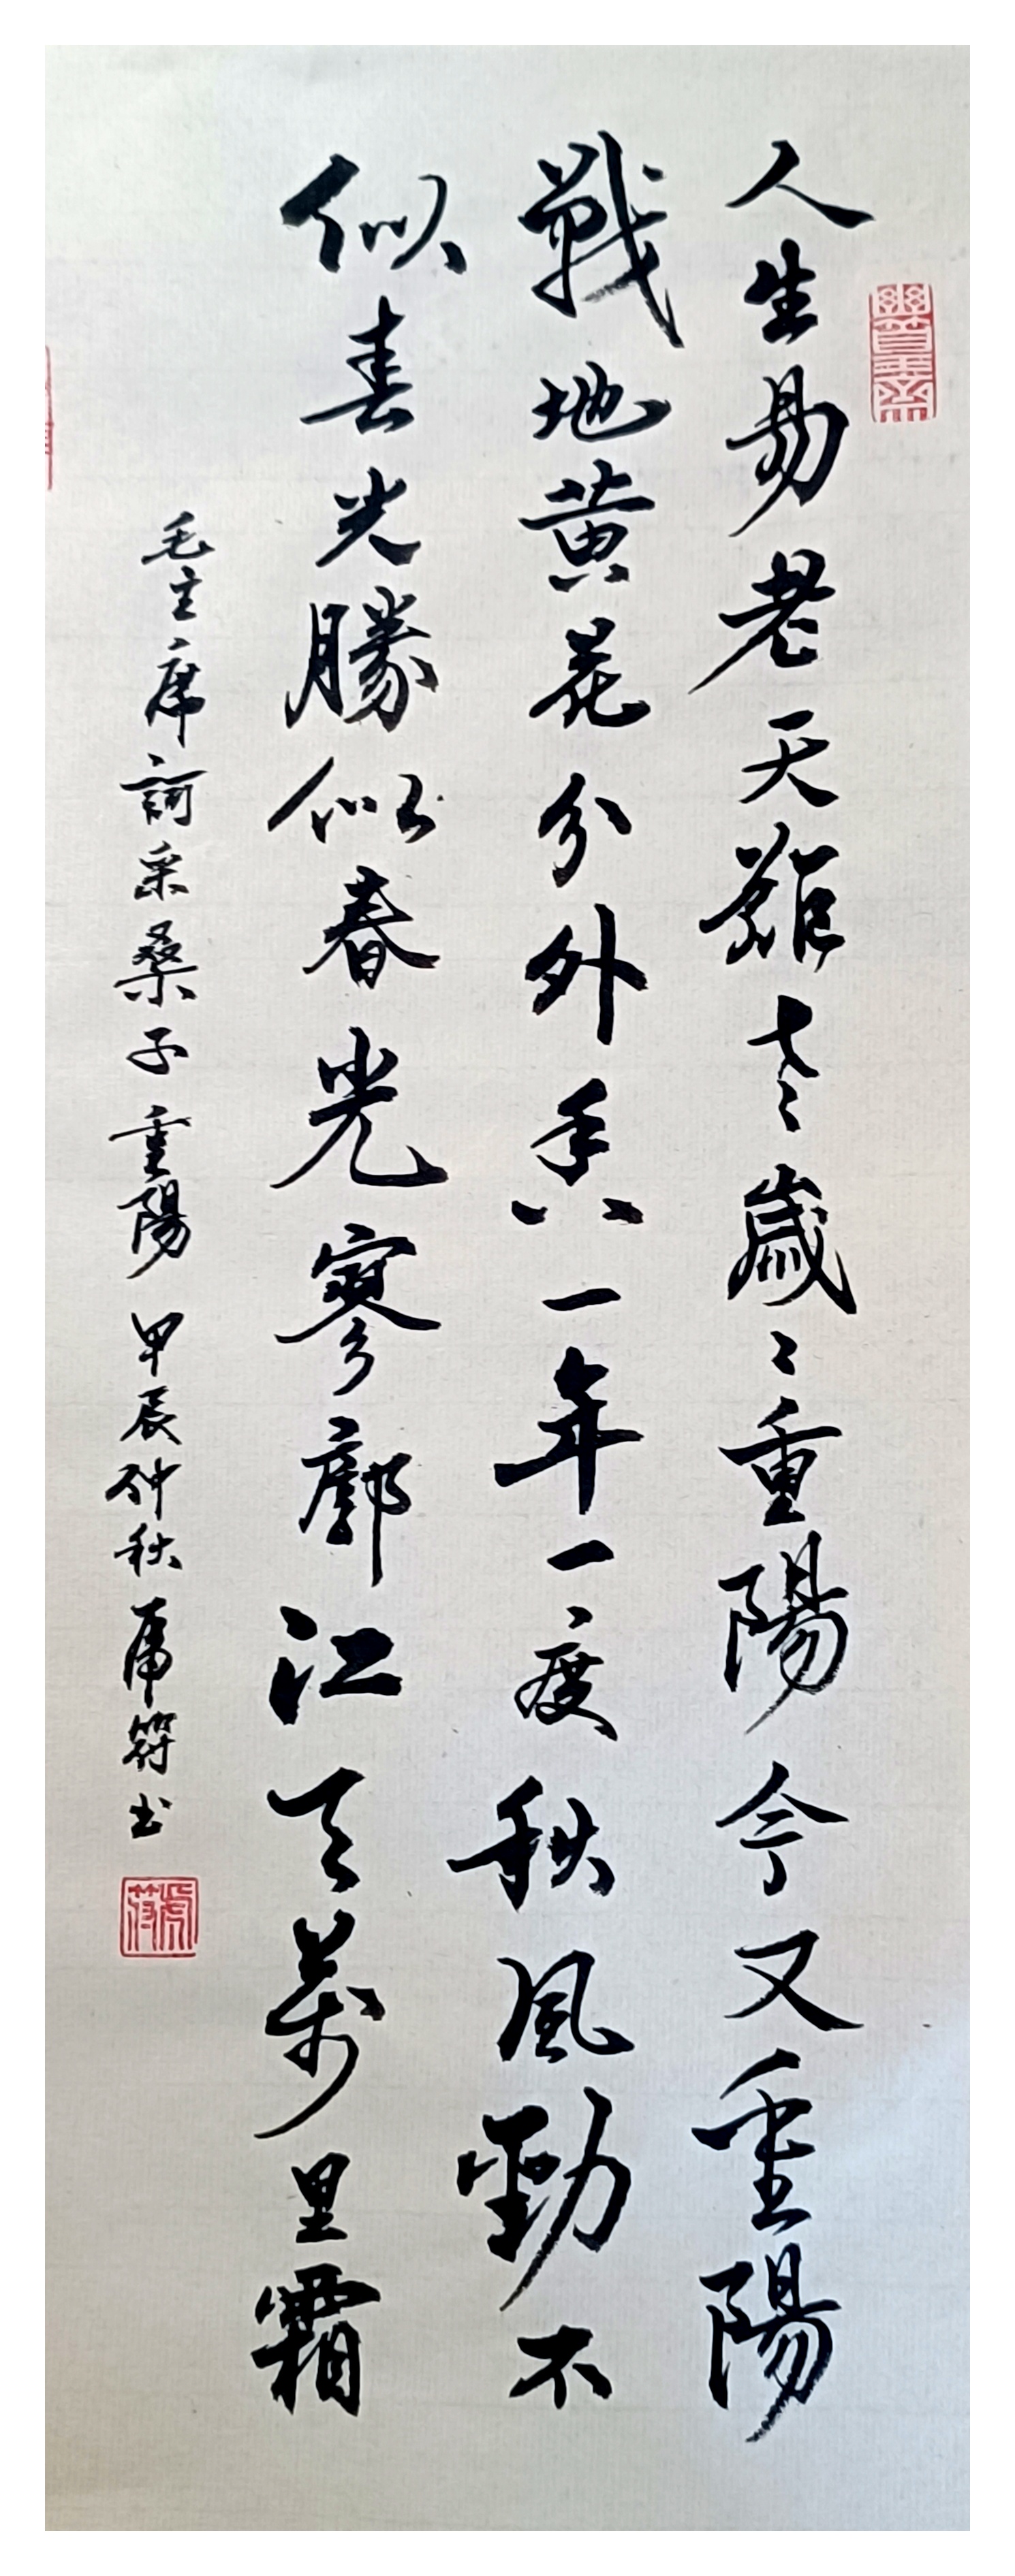 人生易老天難老歲〻重陽今又重陽
戰地黃花分外香一年一度秋風勁不
似春光勝似春光寥廓江天萬里霜
毛主席詞采桑子重陽甲辰仲秋虎符書
虎符